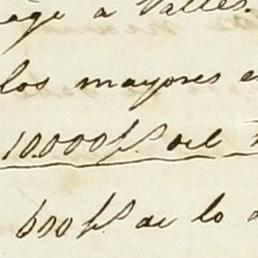 age a Valles.
los mayores e
10.000 p.s del
600 p.s de lo